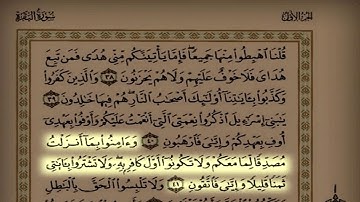 سُورَةُ البَقَرَةِ
الجُزءُ الأَوَّلُ
قُلۡنَا ٱهۡبِطُواْ مِنۡهَا جَمِيعٗاۖ فَإِمَّا يَأۡتِيَنَّكُم مِّنِّي هُدٗى فَمَن تَبِعَ
هُدَايَ فَلَا خَوۡفٌ عَلَيۡهِمۡ وَلَا هُمۡ يَحۡزَنُونَ ٣٨ وَٱلَّذِينَ كَفَرُواْ
وَكَذَّبُواْ بِـَٔايَٰتِنَآ أُوْلَٰٓئِكَ أَصۡحَٰبُ ٱلنَّارِۖ هُمۡ فِيهَا خَٰلِدُونَ ٣٩
يَٰبَنِيٓ إِسۡرَٰٓءِيلَ ٱذۡكُرُواْ نِعۡمَتِيَ ٱلَّتِيٓ أَنۡعَمۡتُ عَلَيۡكُمۡ وَأَوۡفُواْ بِعَهۡدِيٓ
أُوفِ بِعَهۡدِكُمۡ وَإِيَّٰيَ فَٱرۡهَبُونِ ٤٠ وَءَامِنُواْ بِمَآ أَنزَلۡتُ
مُصَدِّقٗا لِّمَا مَعَكُمۡ وَلَا تَكُونُوٓاْ أَوَّلَ كَافِرِۭ بِهِۦۖ وَلَا تَشۡتَرُواْ بِـَٔايَٰتِي
ثَمَنٗا قَلِيلٗا وَإِيَّٰيَ فَٱتَّقُونِ ٤١ وَلَا تَلۡبِسُواْ ٱلۡحَقَّ بِٱلۡبَٰطِلِ